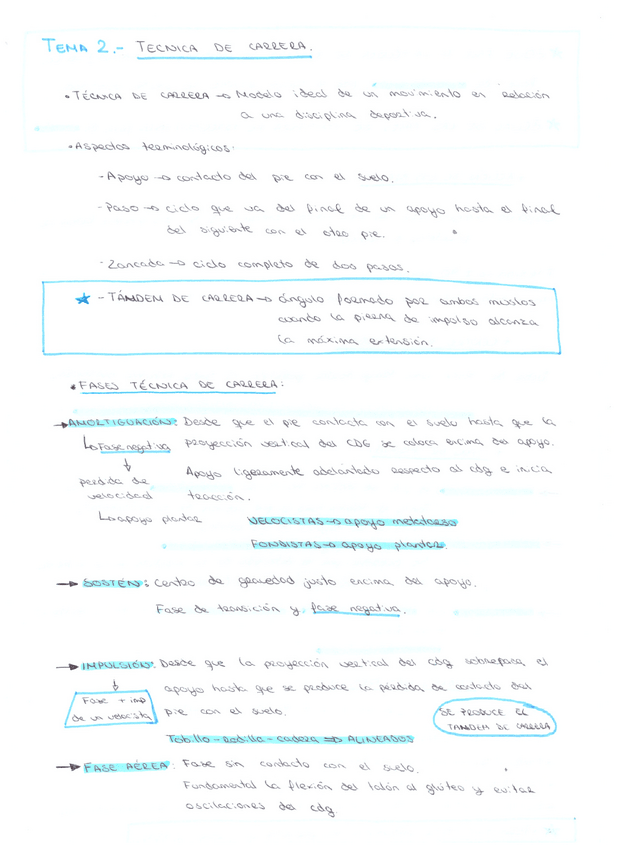 TEMA 2.- TECNICA DE CARRERA.
• TÉCNICA DE CARRERA → Modelo ideal de un movimiento en relación
a una disciplina deportiva.
• Aspectos terminológicos.
- Apoyo → contacto del pie con el suelo.
- Paso → ciclo que va del final de un apoyo hasta el final
del siguiente con el otro pie.
- Zancada → ciclo completo de dos pasos.
★ - TÁNDEM DE CARRERA → ángulo formado por ambos muslos
cuando la pierna de impulso alcanza
la máxima extensión.
• FASES TÉCNICA DE CARRERA:
→ AMORTIGUACIÓN: Desde que el pie contacta con el suelo hasta que la
↳ Fase negativa proyección vertical del CDG se coloca encima del apoyo.
↓ Apoyo ligeramente adelantado respecto al cdg e inicia
perdida de
velocidad tracción.
↳ apoyo plantar VELOCISTAS → apoyo metatarso
FONDISTAS → apoyo plantar.
→ SOSTÉN: Centro de gravedad justo encima del apoyo.
Fase de transición y fase negativa.
→ IMPULSIÓN: Desde que la proyección vertical del cdg sobrepasa el
↓ apoyo hasta que se produce la pérdida de contacto del
Fase + imp
de un velocista pie con el suelo. SE PRODUCE EL
TANDEM DE CARRERA
Tobillo - rodilla - cadera ⇒ ALINEADOS
→ FASE AÉREA: Fase sin contacto con el suelo.
Fundamental la flexión del talón al glúteo y evitar
oscilaciones del cdg.